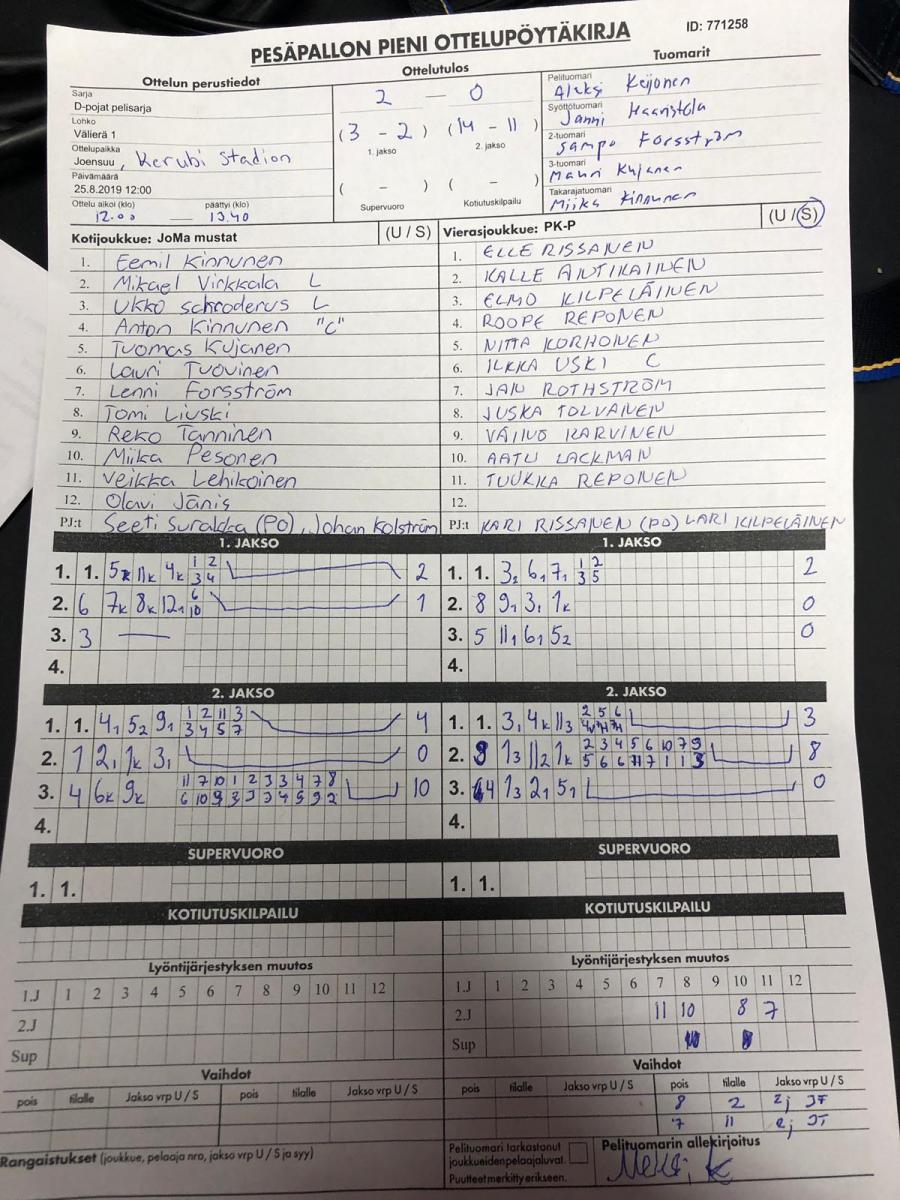 PESÄPALLON PIENI OTTELUPÖYTÄKIRJA
ID: 771258
Ottelun perustiedot
Sarja
D-pojat pelisarja
Lohko
Välierä 1
Ottelupaikka
Joensuu, Kerubi Stadion
Päivämäärä
25.8.2019 12:00
Ottelu alkoi (klo) päättyi (klo)
12.00 — 13.40
Ottelutulos
2 — 0
(3 - 2) (14 - 11)
1. jakso 2. jakso
( - ) ( - )
Supervuoro Kotiutuskilpailu
Tuomarit
Pelituomari
Aleksi Keijonen
Syöttötuomari
Janni Haaristola
2-tuomari
Sampo Forsström
3-tuomari
Mauri Kujanen
Takarajatuomari
Miika Kinnunen
Kotijoukkue: JoMa mustat (U / S)
1. Eemil Kinnunen
2. Mikael Virkkala L
3. Ukko Schroderus L
4. Anton Kinnunen "C"
5. Tuomas Kujanen
6. Lauri Tuovinen
7. Lenni Forsström
8. Tomi Liuski
9. Reko Tanninen
10. Miika Pesonen
11. Veikka Lehikoinen
12. Olavi Jänis
PJ:t Seeti Suralka (PO), Johan Kolström
Vierasjoukkue: PK-P (U / S)
1. ELLE RISSANEN
2. KALLE ANTIKAINEN
3. ELMO KILPELÄINEN
4. ROOPE REPONEN
5. NIITA KORHONEN
6. ILKKA USKI C
7. JAN ROTHSTRÖM
8. JUSKA TOLVANEN
9. VÄINÖ KARVINEN
10. AATU LACKMAN
11. TUUKKA REPONEN
12.
PJ:t KARI RISSANEN (PO) LARI KILPELÄINEN
1. JAKSO
1. 1. 5k 11k 4k 1 2 2
3 4
2. 6 7k 8k 12₁ 6 1
10
3. 3 —
4.
1. JAKSO
1. 1. 3₂ 6₁ 7₁ 1 2 2
3 5
2. 8 9₁ 3₁ 1k 0
3. 5 11₁ 6₁ 5₂ 0
4.
2. JAKSO
1. 1. 4₁ 5₂ 9₁ 1 2 11 3 4
3 4 5 7
2. 1 2₁ 1k 3₁ 0
3. 4 6k 9k 11 7 10 1 2 3 3 4 7 8 10
6 10 9 3 3 3 4 5 9 2
4.
2. JAKSO
1. 1. 3₁ 4k 11₃ 2 5 6 3
2. 8 1₃ 11₂ 1k 2 3 4 5 6 10 7 9 8
5 6 6 11 7 1 1 3
3. 4 1₃ 2₁ 5₁ 0
4.
SUPERVUORO
1. 1.
SUPERVUORO
1. 1.
KOTIUTUSKILPAILU
KOTIUTUSKILPAILU
Lyöntijärjestyksen muutos
1.J 1 2 3 4 5 6 7 8 9 10 11 12
2.J
Sup
Lyöntijärjestyksen muutos
1.J 1 2 3 4 5 6 7 8 9 10 11 12
2.J 11 10 8 7
Sup
Vaihdot
pois tilalle Jakso vrp U / S pois tilalle Jakso vrp U / S
Vaihdot
pois tilalle Jakso vrp U / S pois tilalle Jakso vrp U / S
8 2 2j
7 11 2j
Rangaistukset (joukkue, pelaaja nro, jakso vrp U / S ja syy)
Pelituomari tarkastanut
joukkueidenpelaajaluvat.
Puutteet merkitty erikseen.
Pelituomarin allekirjoitus